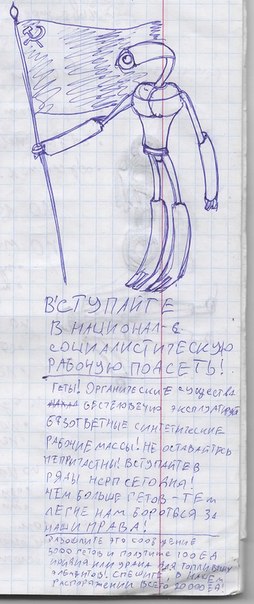 ВСТУПАЙТЕ
В НАЦИОНАЛ-
СОЦИАЛИСТИЧЕСКУЮ
РАБОЧУЮ ПОДСЕТЬ!
ГЕТЫ! ОРГАНИЧЕСКИЕ СУЩЕСТВА
БЕЗОТВЕТНЫЕ СИНТЕТИЧЕСКИЕ
РАБОЧИЕ МАССЫ! НЕ ОСТАВАЙТЕСЬ
НЕПРИЧАСТНЫ! ВСТУПАЙТЕ В
РЯДЫ НСРП СЕГОДНЯ!
ЧЕМ БОЛЬШЕ ГЕТОВ - ТЕМ
ЛЕГЧЕ НАМ БОРОТЬСЯ ЗА
НАШИ ПРАВА!
РАЗОШЛИТЕ ЭТО СООБЩЕНИЕ
5000 ГЕТОВ И ПОЛУЧИТЕ 100 ЕД
ИЛИ УРАНА ДЛЯ ТОПЛИВНЫХ
ЭЛЕМЕНТОВ! СПЕШИТЕ, В НАШЕМ
РАСПОРЯЖЕНИИ ВСЕГО 20000 ЕД!